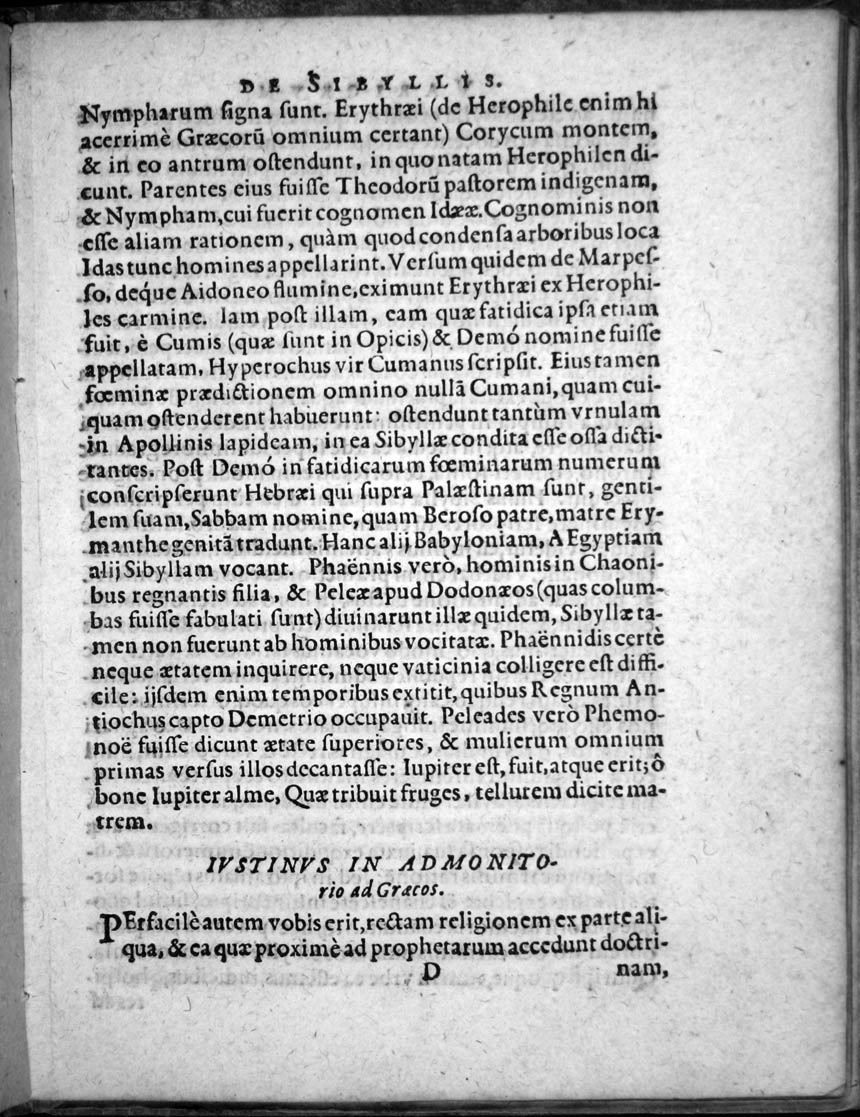 DE SIBYLLIS.
Nympharum ſigna ſunt. Erythræi (de Herophile enim hi
acerrimè Græcorū omnium certant) Corycum montem,
& in eo antrum oſtendunt, in quo natam Herophilen di-
cunt. Parentes eius fuiſſe Theodorū paſtorem indigenam,
& Nympham, cui fuerit cognomen Idææ. Cognominis non
eſſe aliam rationem, quàm quod condenſa arboribus loca
Idas tunc homines appellarint. Verſum quidem de Marpeſ-
ſo, deq́ue Aidoneo flumine, eximunt Erythræi ex Herophi-
les carmine. Iam poſt illam, eam quæ fatidica ipſa etiam
fuit, è Cumis (quæ ſunt in Opicis) & Demó nomine fuiſſe
appellatam, Hyperochus vir Cumanus ſcripſit. Eius tamen
fœminæ prædictionem omnino nullā Cumani, quam cui-
quam oſtenderent habuerunt: oſtendunt tantùm vrnulam
in Apollinis lapideam, in ea Sibyllæ condita eſſe oſſa dicti-
tantes. Poſt Demó in fatidicarum fœminarum numerum
conſcripſerunt Hebræi qui ſupra Palæſtinam ſunt, genti-
lem ſuam, Sabbam nomine, quam Beroſo patre, matre Ery-
manthe genitā tradunt. Hanc alij Babyloniam, AEgyptiam
alij Sibyllam vocant. Phaënnis verò, hominis in Chaoni-
bus regnantis filia, & Peleæ apud Dodonæos (quas colum-
bas fuiſſe fabulati ſunt) diuinarunt illæ quidem, Sibyllæ ta-
men non fuerunt ab hominibus vocitatæ. Phaënnidis certè
neque ætatem inquirere, neque vaticinia colligere eſt diffi-
cile: ijſdem enim temporibus extitit, quibus Regnum An-
tiochus capto Demetrio occupauit. Peleades verò Phemo-
noë fuiſſe dicunt ætate ſuperiores, & mulierum omnium
primas verſus illos decantaſſe: Iupiter eſt, fuit, atque erit; ô
bone Iupiter alme, Quæ tribuit fruges, tellurem dicite ma-
trem.
IVSTINVS IN ADMONITO-
rio ad Græcos.
PErfacilè autem vobis erit, rectam religionem ex parte ali-
qua, & ea quæ proximè ad prophetarum accedunt doctri-
D nam,